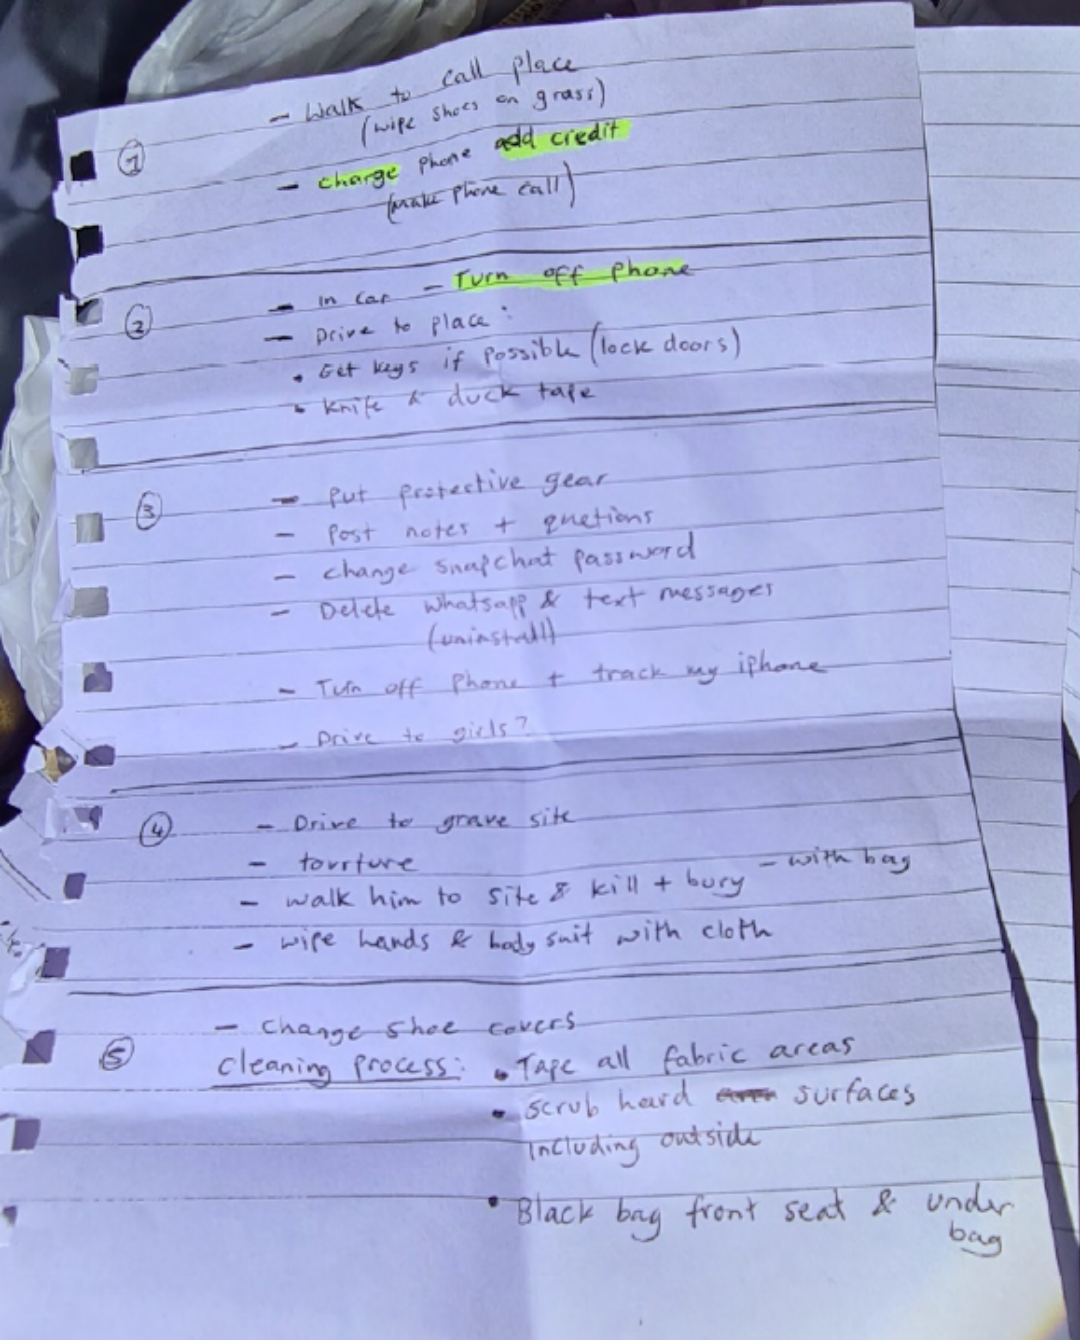 ①
- Walk to call place
(wipe shoes on grass)
- charge phone add credit
(make phone call)
②
- In car - Turn off phone
- Drive to place:
• Get keys if possible (lock doors)
• knife & duck tape
③
- Put protective gear
- Post notes + quetions
- change snapchat password
- Delete whatsapp & text messages
(uninstall)
- Turn off Phone + track my iphone
- Drive to girls?
④
- Drive to grave site
- tourture
- walk him to site & kill + bury - with bag
- wipe hands & body suit with cloth
⑤
- change shoe covers
cleaning process: • Tape all fabric areas
• scrub hard surfaces
Including outside
• Black bag front seat & under
bag